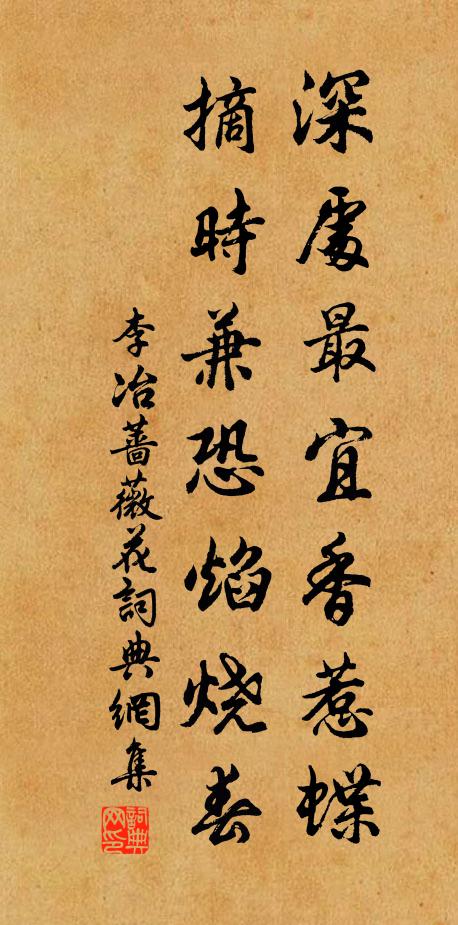 深處最宜香惹蝶
摘時兼恐焰燒春
李冶薔薇花詞典網集
詞典網印